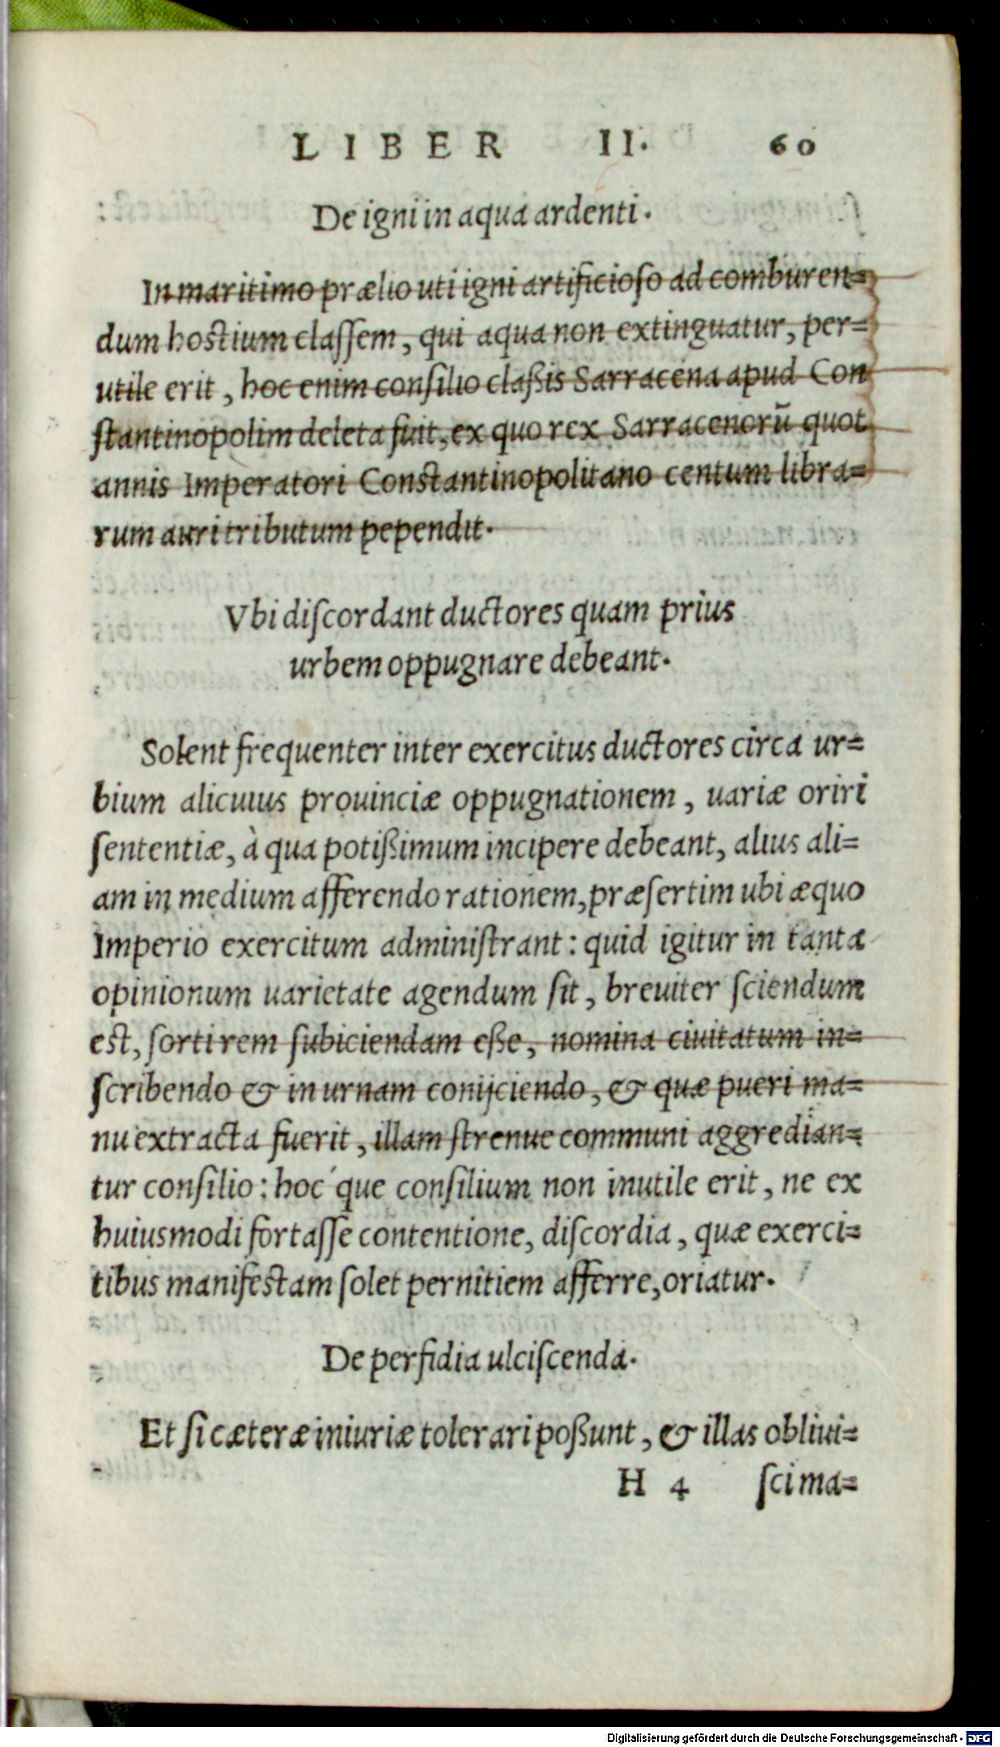 LIBER II. 60
De igni in aqua ardenti.
In maritimo prælio uti igni artificioso ad comburen=
dum hostium classem, qui aqua non extinguatur, per=
utile erit, hoc enim consilio claßis Sarracena apud Con
stantinopolim deleta fuit, ex quo rex Sarracenorū quot
annis Imperatori Constantinopolitano centum libra=
rum auri tributum pependit.
Vbi discordant ductores quam prius
urbem oppugnare debeant.
Solent frequenter inter exercitus ductores circa ur=
bium alicuius prouinciæ oppugnationem, uariæ oriri
sententiæ, à qua potißimum incipere debeant, alius ali=
am in medium afferendo rationem, præsertim ubi æquo
Imperio exercitum administrant: quid igitur in tanta
opinionum uarietate agendum sit, breuiter sciendum
est, sorti rem subiciendam eße, nomina ciuitatum in=
scribendo & in urnam conijciendo, & quæ pueri ma=
nu extracta fuerit, illam strenue communi aggredian=
tur consilio: hoc´que consilium non inutile erit, ne ex
huiusmodi fortasse contentione, discordia, quæ exerci=
tibus manifestam solet pernitiem afferre, oriatur.
De perfidia ulciscenda.
Et si cæteræ iniuriæ tolerari poßunt, & illas obliui=
H 4 sci ma=
Digitalisierung gefördert durch die Deutsche Forschungsgemeinschaft - DFG